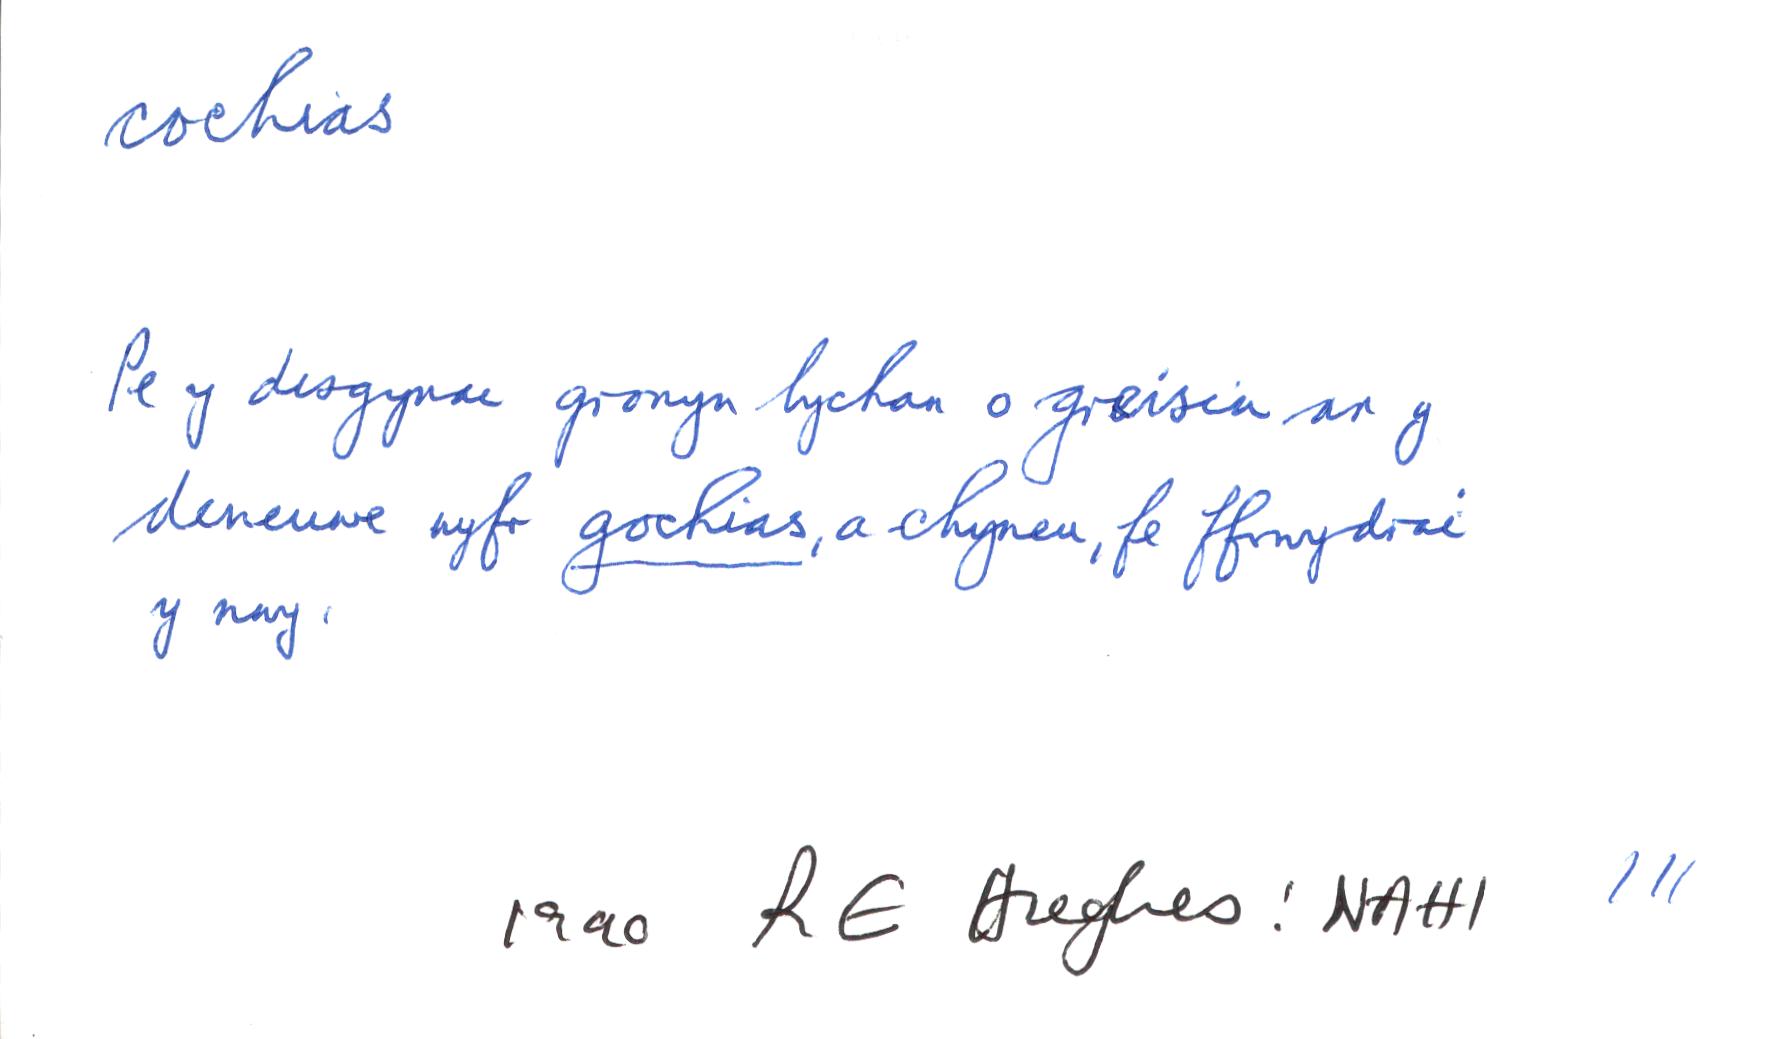 cochias
Pe y disgynai gronyn bychan o greisin ar y
deneuwe wyfr gochias, a chyneu, fe ffrwydrai
y nwy.
1990 R E Hughes: NAHI 111